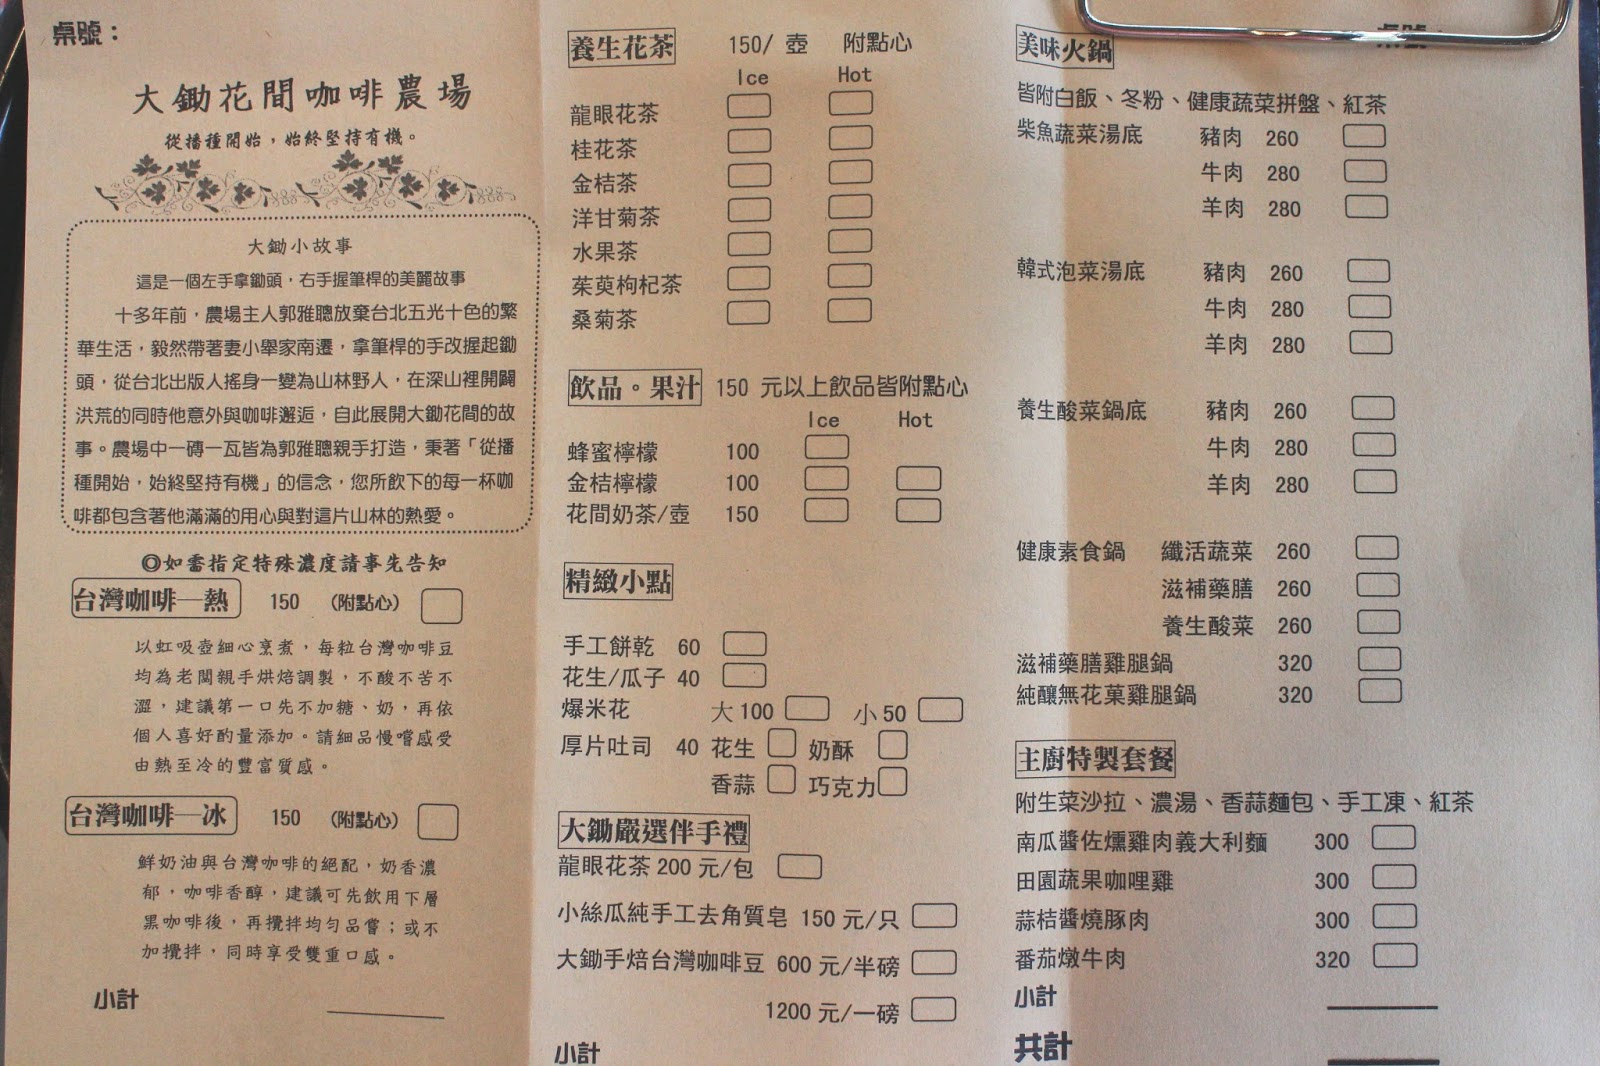 桌號：
大鋤花間咖啡農場
從播種開始，始終堅持有機。
大鋤小故事
這是一個左手拿鋤頭，右手握筆桿的美麗故事
十多年前，農場主人郭雅聰放棄台北五光十色的繁
華生活，毅然帶著妻小舉家南遷，拿筆桿的手改握起鋤
頭，從台北出版人搖身一變為山林野人，在深山裡開闢
洪荒的同時他意外與咖啡邂逅，自此展開大鋤花間的故
事。農場中一磚一瓦皆為郭雅聰親手打造，秉著「從播
種開始，始終堅持有機」的信念，您所飲下的每一杯咖
啡都包含著他滿滿的用心與對這片山林的熱愛。
◎如需指定特殊濃度請事先告知
台灣咖啡—熱 150 (附點心)
以虹吸壺細心烹煮，每粒台灣咖啡豆
均為老闆親手烘焙調製，不酸不苦不
澀，建議第一口先不加糖、奶，再依
個人喜好酌量添加。請細品慢嚐感受
由熱至冷的豐富質感。
台灣咖啡—冰 150 (附點心)
鮮奶油與台灣咖啡的絕配，奶香濃
郁，咖啡香醇，建議可先飲用下層
黑咖啡後，再攪拌均勻品嘗；或不
加攪拌，同時享受雙重口感。
小計
養生花茶 150/ 壺 附點心
Ice Hot
龍眼花茶
桂花茶
金桔茶
洋甘菊茶
水果茶
茱萸枸杞茶
桑菊茶
飲品。果汁 150 元以上飲品皆附點心
Ice Hot
蜂蜜檸檬 100
金桔檸檬 100
花間奶茶/壺 150
精緻小點
手工餅乾 60
花生/瓜子 40
爆米花 大 100 小 50
厚片吐司 40 花生 奶酥
香蒜 巧克力
大鋤嚴選伴手禮
龍眼花茶 200 元/包
小絲瓜純手工去角質皂 150 元/只
大鋤手焙台灣咖啡豆 600 元/半磅
1200 元/一磅
小計
美味火鍋
皆附白飯、冬粉、健康蔬菜拼盤、紅茶
柴魚蔬菜湯底 豬肉 260
牛肉 280
羊肉 280
韓式泡菜湯底 豬肉 260
牛肉 280
羊肉 280
養生酸菜鍋底 豬肉 260
牛肉 280
羊肉 280
健康素食鍋 纖活蔬菜 260
滋補藥膳 260
養生酸菜 260
滋補藥膳雞腿鍋 320
純釀無花菓雞腿鍋 320
主廚特製套餐
附生菜沙拉、濃湯、香蒜麵包、手工凍、紅茶
南瓜醬佐燻雞肉義大利麵 300
田園蔬果咖哩雞 300
蒜桔醬燒豚肉 300
番茄燉牛肉 320
小計
共計